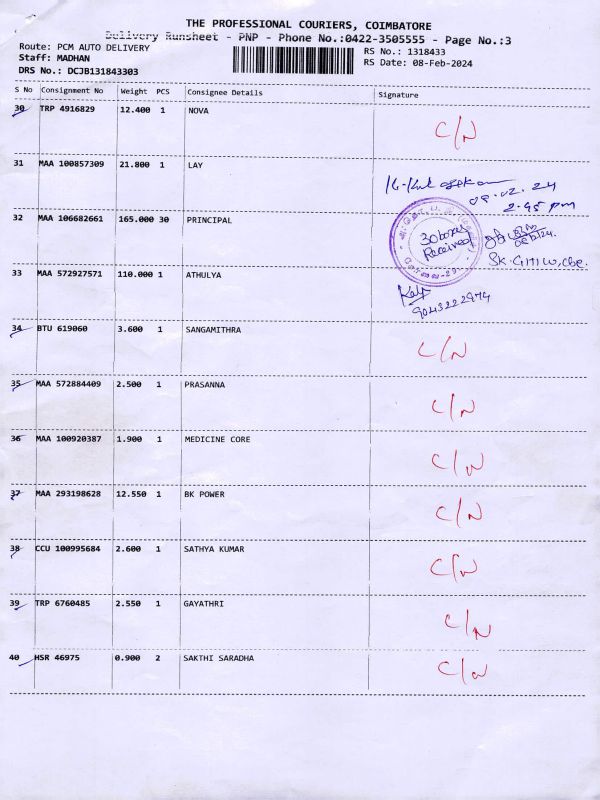 THE PROFESSIONAL COURIERS, COIMBATORE
Delivery Runsheet - PNP - Phone No.:0422-3505555 - Page No.:3
Route: PCM AUTO DELIVERY
Staff: MADHAN
DRS No.: DCJB131843303
RS No.: 1318433
RS Date: 08-Feb-2024
S No Consignment No Weight PCS Consignee Details Signature
30 TRP 4916829 12.400 1 NOVA C/N
31 MAA 100857309 21.800 1 LAY
08.02.24
2.45 pm
32 MAA 106682661 165.000 30 PRINCIPAL
30 boxes
Received
SK.GHIW,Cbe.
33 MAA 572927571 110.000 1 ATHULYA
9043222974
34 BTU 619060 3.600 1 SANGAMITHRA C/N
35 MAA 572884409 2.500 1 PRASANNA C/N
36 MAA 100920387 1.900 1 MEDICINE CORE C/N
37 MAA 293198628 12.550 1 BK POWER C/N
38 CCU 100995684 2.600 1 SATHYA KUMAR C/N
39 TRP 6760485 2.550 1 GAYATHRI C/N
40 HSR 46975 0.900 2 SAKTHI SARADHA C/N